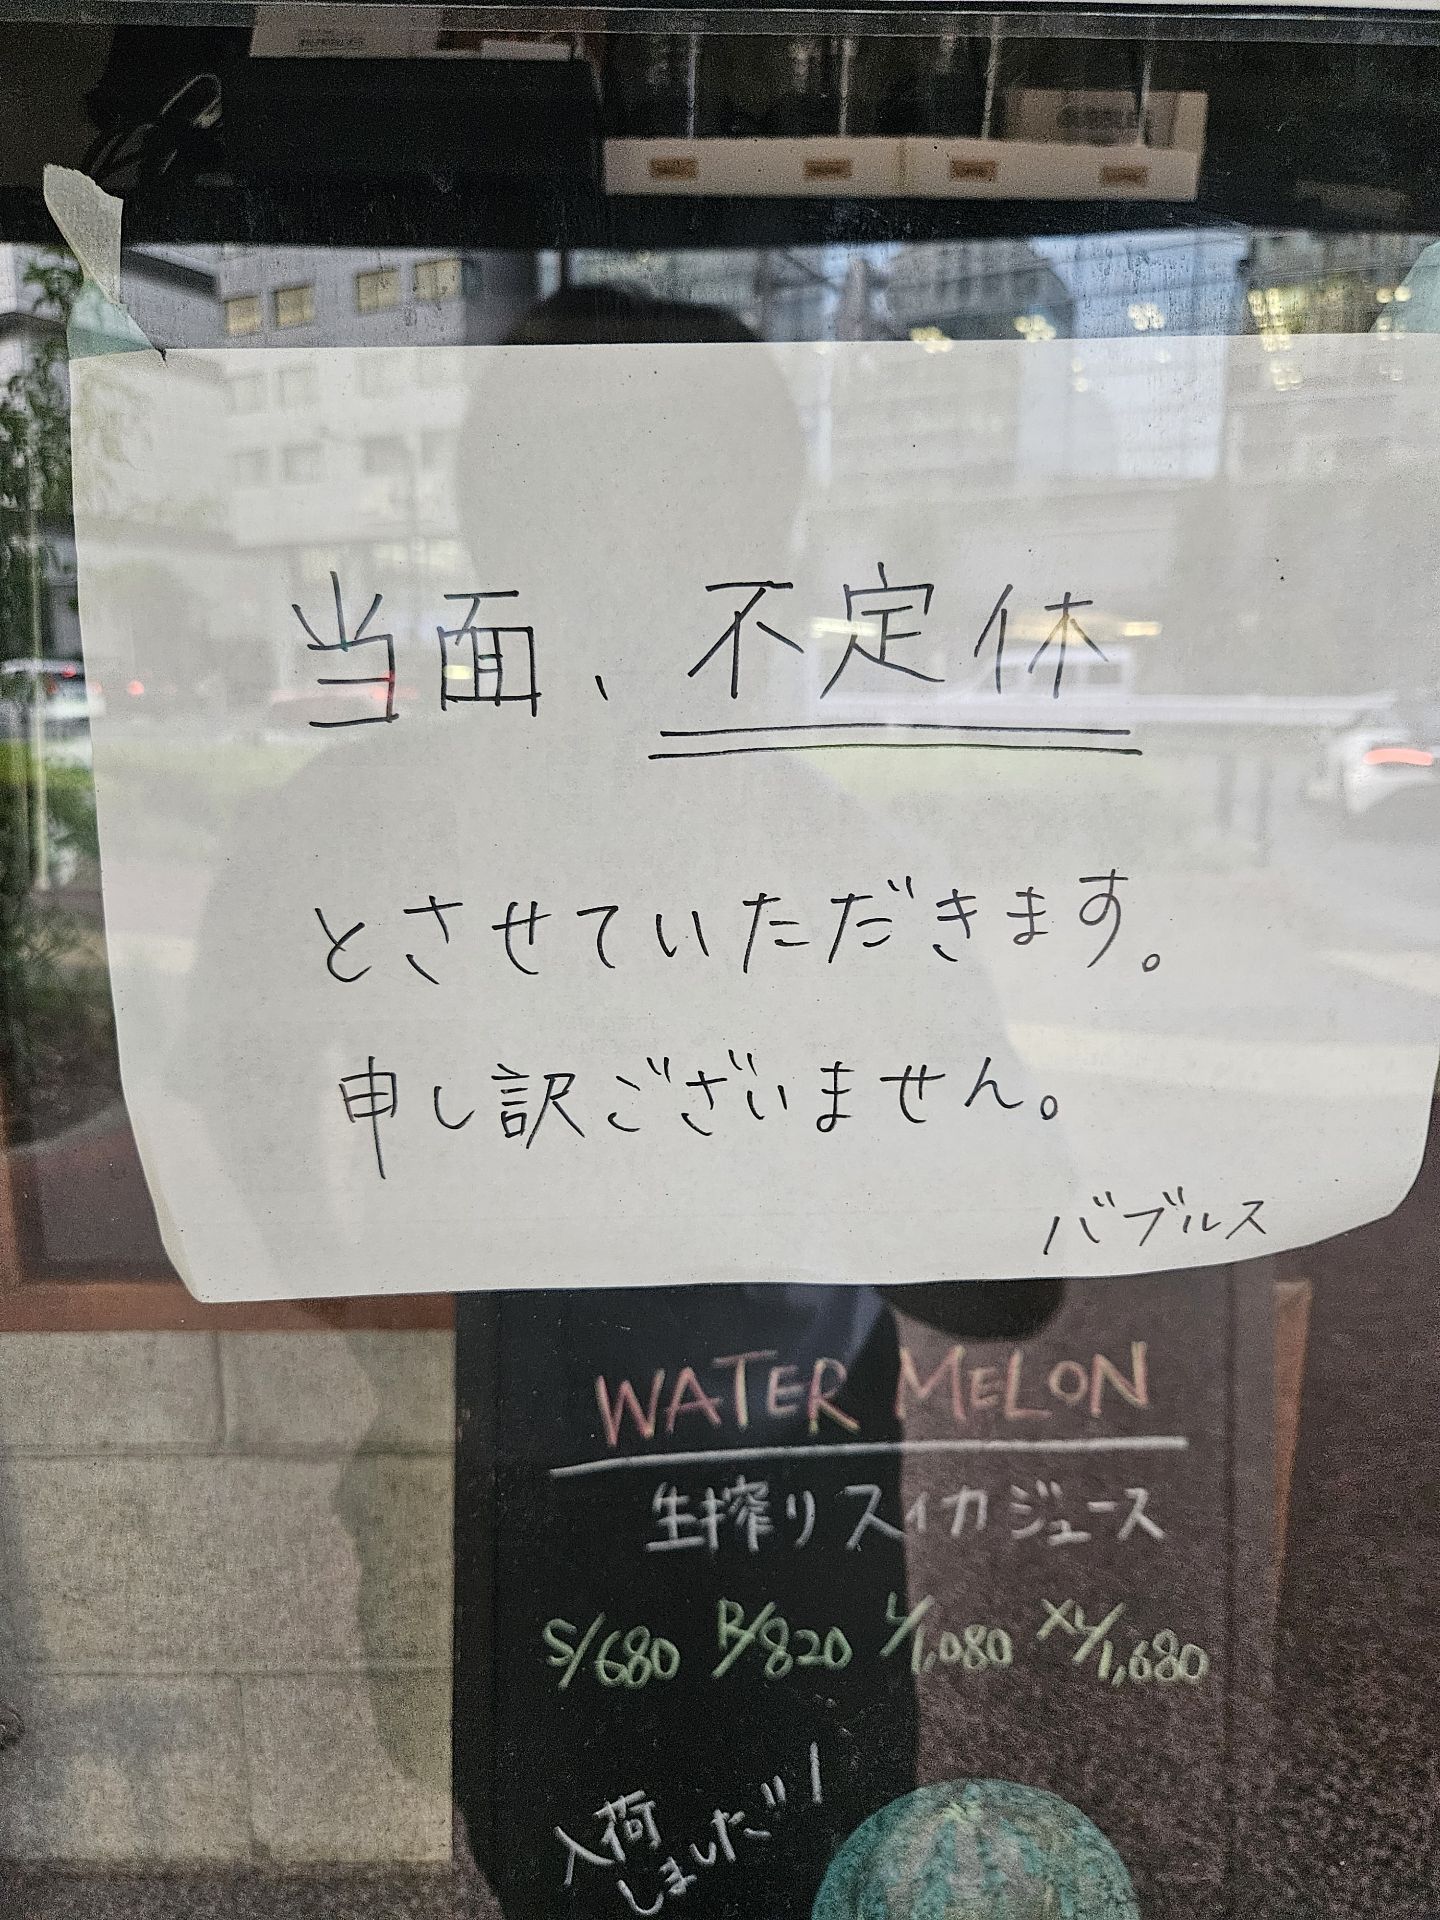 当面、不定休
とさせていただきます。
申し訳ございません。
バブルス
WATER MELON
生搾りスイカジュース
S/680 R/820 L/1,080 XL/1,680
入荷
しました!!